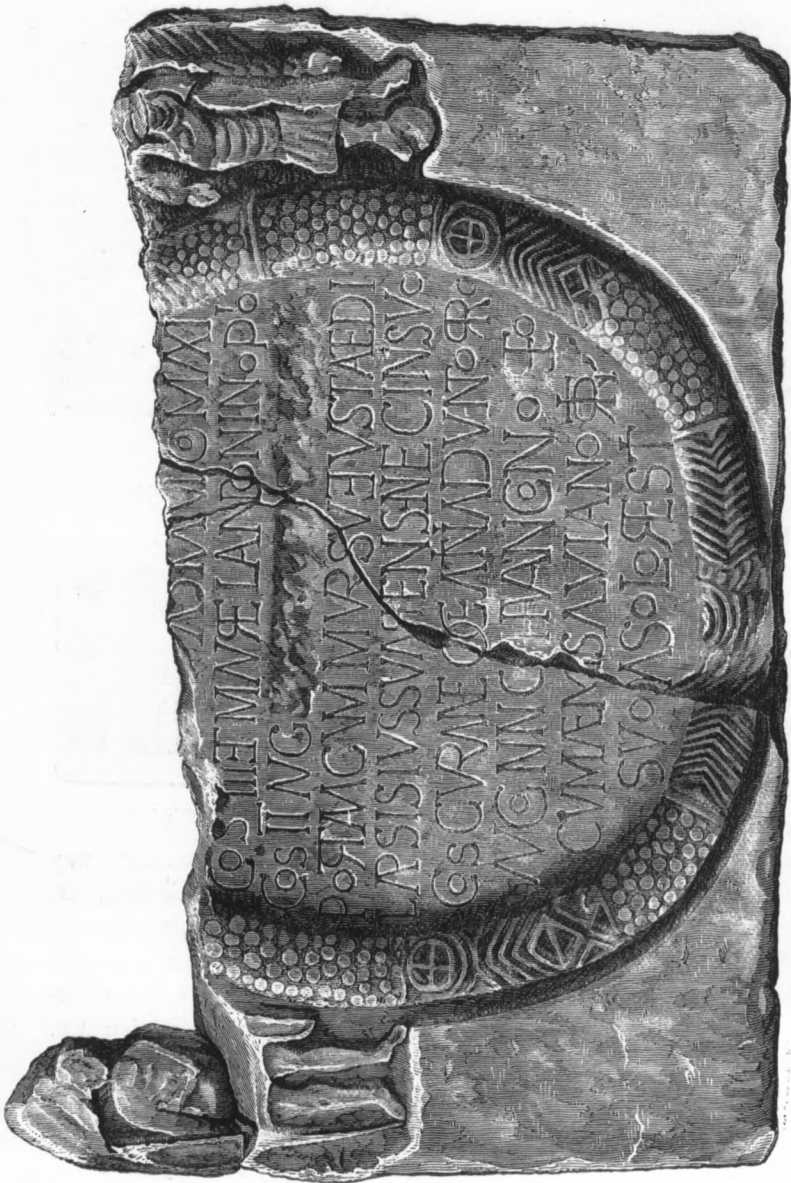 MAXI
COS III ET M AVREL ANTONINO PIO
COS II AVG
PORTAM CVM MVRIS VETVSTATE DI
LAPSIS IVSSV ALFEN SENECINIS VO
COS CVRANTE COL ANITI ADVENTO PRO
AVG NN C I VANGON o
CVM AEM SALVIAN TRIB
SVO A SOLO REST